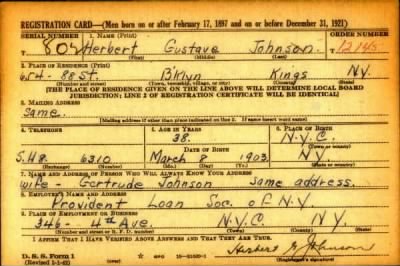 REGISTRATION CARD—(Men born on or after February 17, 1897 and on or before December 31, 1921)
SERIAL NUMBER 1. NAME (Print) ORDER NUMBER
805 Herbert Gustave Johnson 12145
(First) (Middle) (Last)
2. PLACE OF RESIDENCE (Print)
654 - 88 St. B'klyn Kings N.Y.
(Number and street) (Town, township, village, or city) (County) (State)
[THE PLACE OF RESIDENCE GIVEN ON THE LINE ABOVE WILL DETERMINE LOCAL BOARD
JURISDICTION; LINE 2 OF REGISTRATION CERTIFICATE WILL BE IDENTICAL]
3. MAILING ADDRESS
Same
[Mailing address if other than place indicated on line 2. If same insert word same]
4. TELEPHONE 5. AGE IN YEARS 6. PLACE OF BIRTH
38. N.Y.C.
DATE OF BIRTH
S.H8. 6310 March 8 1903 N.Y.
(Exchange) (Number) (Mo.) (Day) (Yr.) (State or country)
7. NAME AND ADDRESS OF PERSON WHO WILL ALWAYS KNOW YOUR ADDRESS
Wife - Gertrude Johnson Same address.
8. EMPLOYER'S NAME AND ADDRESS
Provident Loan Soc. of N.Y.
9. PLACE OF EMPLOYMENT OR BUSINESS
346 - 4th Ave. N.Y.C. N.Y.
(Number and street or R. F. D. number) (Town) (County) (State)
I AFFIRM THAT I HAVE VERIFIED ABOVE ANSWERS AND THAT THEY ARE TRUE.
D. S. S. Form 1
(Revised 1-1-42) GPO 16—21630-1
Herbert G Johnson
(Registrant's signature)